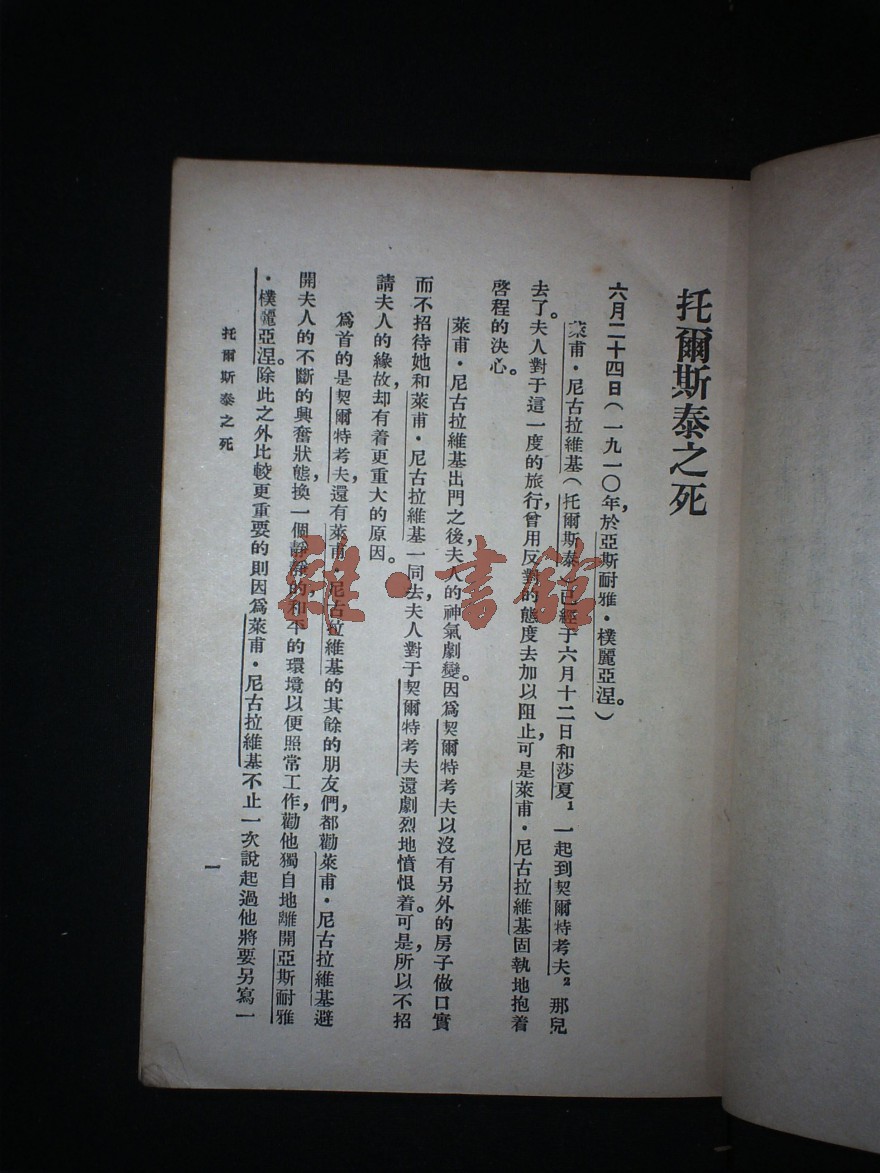 托爾斯泰之死
六月二十四日(一九一〇年,於亞斯耐雅·樸麗亞涅。)
萊甫·尼古拉維基(托爾斯泰)已經于六月十二日和莎夏1一起到契爾特考夫2那兒
去了。夫人對于這一度的旅行曾用反對的態度去加以阻止,可是萊甫·尼古拉維基固執地抱着
啓程的決心。
萊甫·尼古拉維基出門之後,夫人的神氣劇變。因爲契爾特考夫以沒有另外的房子做口實
而不招待她和萊甫·尼古拉維基一同去,夫人對于契爾特考夫還劇烈地憤恨着。可是,所以不招
請夫人的緣故,却有着更重大的原因。
爲首的是契爾特考夫,還有萊甫·尼古拉維基的其餘的朋友們,都勸萊甫·尼古拉維基避
開夫人的不斷的興奮狀態,換一個靜靜的和平的環境以便照常工作,勸他獨自地離開亞斯耐雅
·樸麗亞涅。除此之外比較更重要的則因爲萊甫·尼古拉維基不止一次說起過他將要另寫一
托爾斯泰之死
一
雜·書館